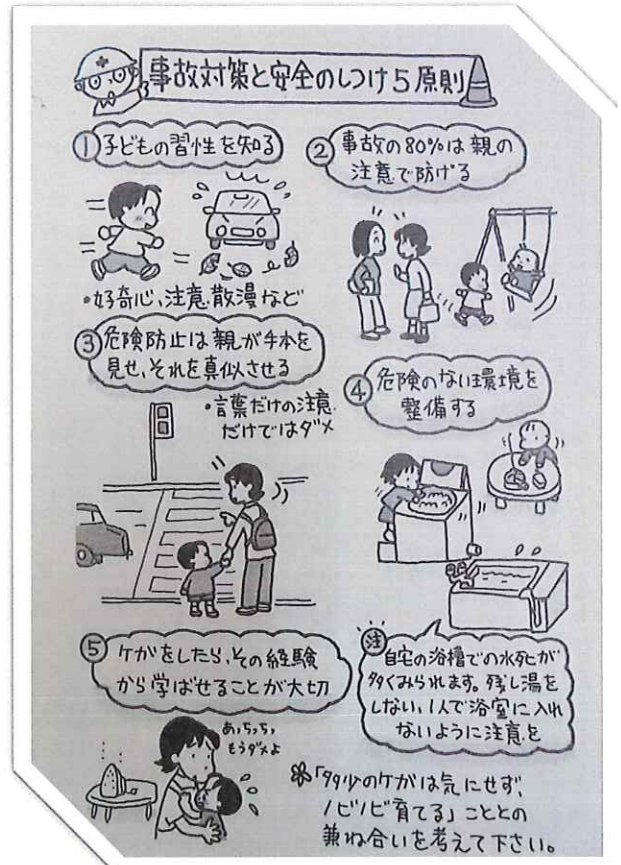 事故対策と安全のしつけ5原則
① 子どもの習性を知る
・好奇心、注意散漫など
② 事故の80%は親の
注意で防げる
③ 危険防止は親が手本を
見せ、それを真似させる
・言葉だけの注意
だけではダメ
④ 危険のない環境を
整備する
⑤ ケガをしたら、その経験
から学ばせることが大切
あっちっち
もうダメよ
注 自宅の浴槽での水死が
多くみられます。残し湯を
しない、1人で浴室に入れ
ないように注意を
※「多少のケガは気にせず、
ノビノビ育てる」こととの
兼ね合いを考えて下さい。